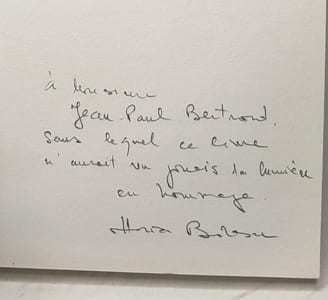 à Monsieur
Jean-Paul Bertrand,
sans lequel ce livre
n'aurait vu jamais la lumière
en hommage